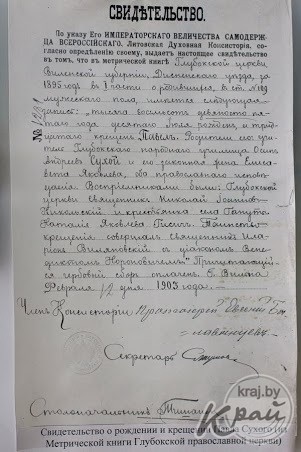 СВИДѢТЕЛЬСТВО.
По указу Его ИМПЕРАТОРСКАГО ВЕЛИЧЕСТВА САМОДЕРЖ-
ЦА ВСЕРОССІЙСКАГО, Литовская Духовная Консисторія, со-
гласно опредѣленію своему, выдаетъ настоящее свидѣтельство
въ томъ, что въ метрической книгѣ Глубокской церкви
Виленской губерніи, Дисненскаго уѣзда, за
1895 годъ въ I части о родившихся, въ ст. №
мужескаго пола, имѣется слѣдующая
запись: "тысяча восемьсотъ девяносто пя-
таго года десятаго Іюля рожденъ и трид-
цатаго крещенъ Павелъ. Родители его: учи-
тель Глубокскаго народнаго училища Осипъ
Андреевъ Сухой и его законная жена Елиса-
вета Яковлева, оба православнаго исповѣ-
данія Воспріемниками были: Глубокской
церкви священникъ Николай
и крестьянка села
Наталія Яковлева Таинство
крещенія совершалъ священникъ
съ псаломщ.
гербовый сборъ оплаченъ Г. Вильна
Февраля 12 дня 1903 года
Членъ Консисторіи, Протоіерей
Секретарь
Столоначальникъ
kraj.by
Край
Свидетельство о рождении и крещении Павла Сухого (из
Метрической книги Глубокской православной церкви)